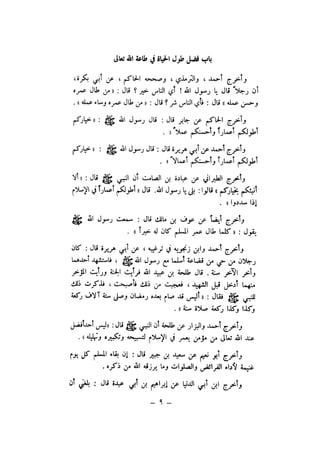 باب فضل طول الحياة في طاعة الله تعالى
وأخرج أحمد ، والترمذي ، وصححه الحاكم ، عن أبي بكرة ،
أن رجلاً قال يا رسول الله ! أي الناس خير ؟ قال : « من طال عمره
وحسن عمله » قال : فأي الناس شر ؟ قال : « من طال عمره وساء عمله » .
وأخرج الحاكم عن جابر قال : قال رسول الله ﷺ : « خياركم
أطولكم أعماراً وأحسنكم عملاً » .
وأخرج أحمد عن أبي هريرة قال : قال رسول الله ﷺ : « خياركم
أطولكم أعماراً وأحسنكم أعمالا » .
وأخرج الطبراني عن عبادة بن الصامت أن النبي ﷺ قال : « ألا
أنبئكم بخياركم » قالوا : بلى يا رسول الله. قال « أطولكم أعماراً في الإسلام
إذا سددوا » .
وأخرج أيضاً عن عوف بن مالك قال : سمعت رسول الله ﷺ
يقول : « كلما طال عمر المسلم كان له خيراً » .
وأخرج أحمد وابن زنجويه في ترغيبه ، عن أبي هريرة قال : كان
رجلان من حي من قضاعة أسلما مع رسول الله ﷺ ، فاستشهد أحدهما
وأخر الآخر سنة . قال طلحة بن عبيد الله فرأيت الجنة ورأيت المؤخر
منهما أدخل قبل الشهيد ، فعجبت من ذلك فأصبحت ، فذكرت ذلك
للنبي ﷺ فقال : « أليس قد صام بعده رمضان وصلى ستة آلاف ركعة
وكذا وكذا ركعة صلاة سنة » .
وأخرج أحمد والبزار عن طلحة أن النبي ﷺ قال : « ليس أحد أفضل
عند الله تعالى من مؤمن يعمر في الإسلام لتسبيحه وتكبيره وتهليله » .
وأخرج أبو نعيم عن سعيد بن جبير قال : إن بقاء المسلم كل يوم
غنيمة لأداء الفرائض والصلوات وما يرزقه الله من ذكره .
وأخرج ابن أبي الدنيا عن إبراهيم بن أبي عبدة قال : بلغني أن
– ٩ –